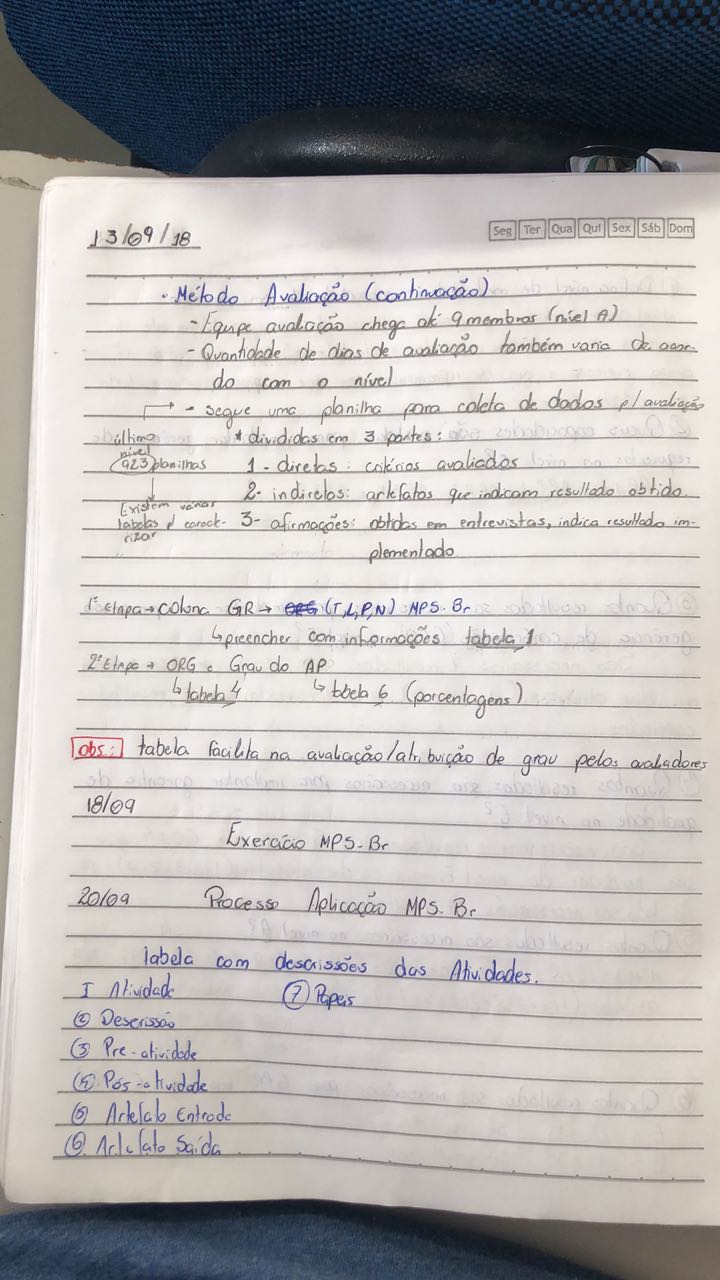 13/09/18
Seg Ter Qua Qui Sex Sáb Dom
• Método Avaliação (continuação)
- Equipe avaliação chega até 9 membros (nível A)
- Quantidade de dias de avaliação também varia de acor-
do com o nível
→ - segue uma planilha para coleta de dados p/ avaliação
último
nível
923 planilhas
Existem varias
tabelas p/ caract-
rizar
* divididas em 3 partes:
1 - diretas: critérios avaliados
2- indiretas: artefatos que indicam resultado obtido.
3- afirmações: obtidas em entrevistas, indica resultado im-
plementado.
1ª Etapa → coluna GR → (T,L,P,N) MPS.Br
↳ preencher com informações tabela 1
2ª Etapa → ORG e Grau do AP
↳ tabela 4 ↳ tbela 6 (porcentagens)
obs: tabela facilita na avaliação/atribuição de grau pelos avaliadores
18/09
Exercício MPS.Br
20/09 Processo Aplicação MPS.Br
Tabela com descrissões das Atividades.
I Atividade ⑦ Papeis
② Descrissão
③ Pre-atividade
④ Pós-atividade
⑤ Artefato Entrada
⑥ Artefato Saída